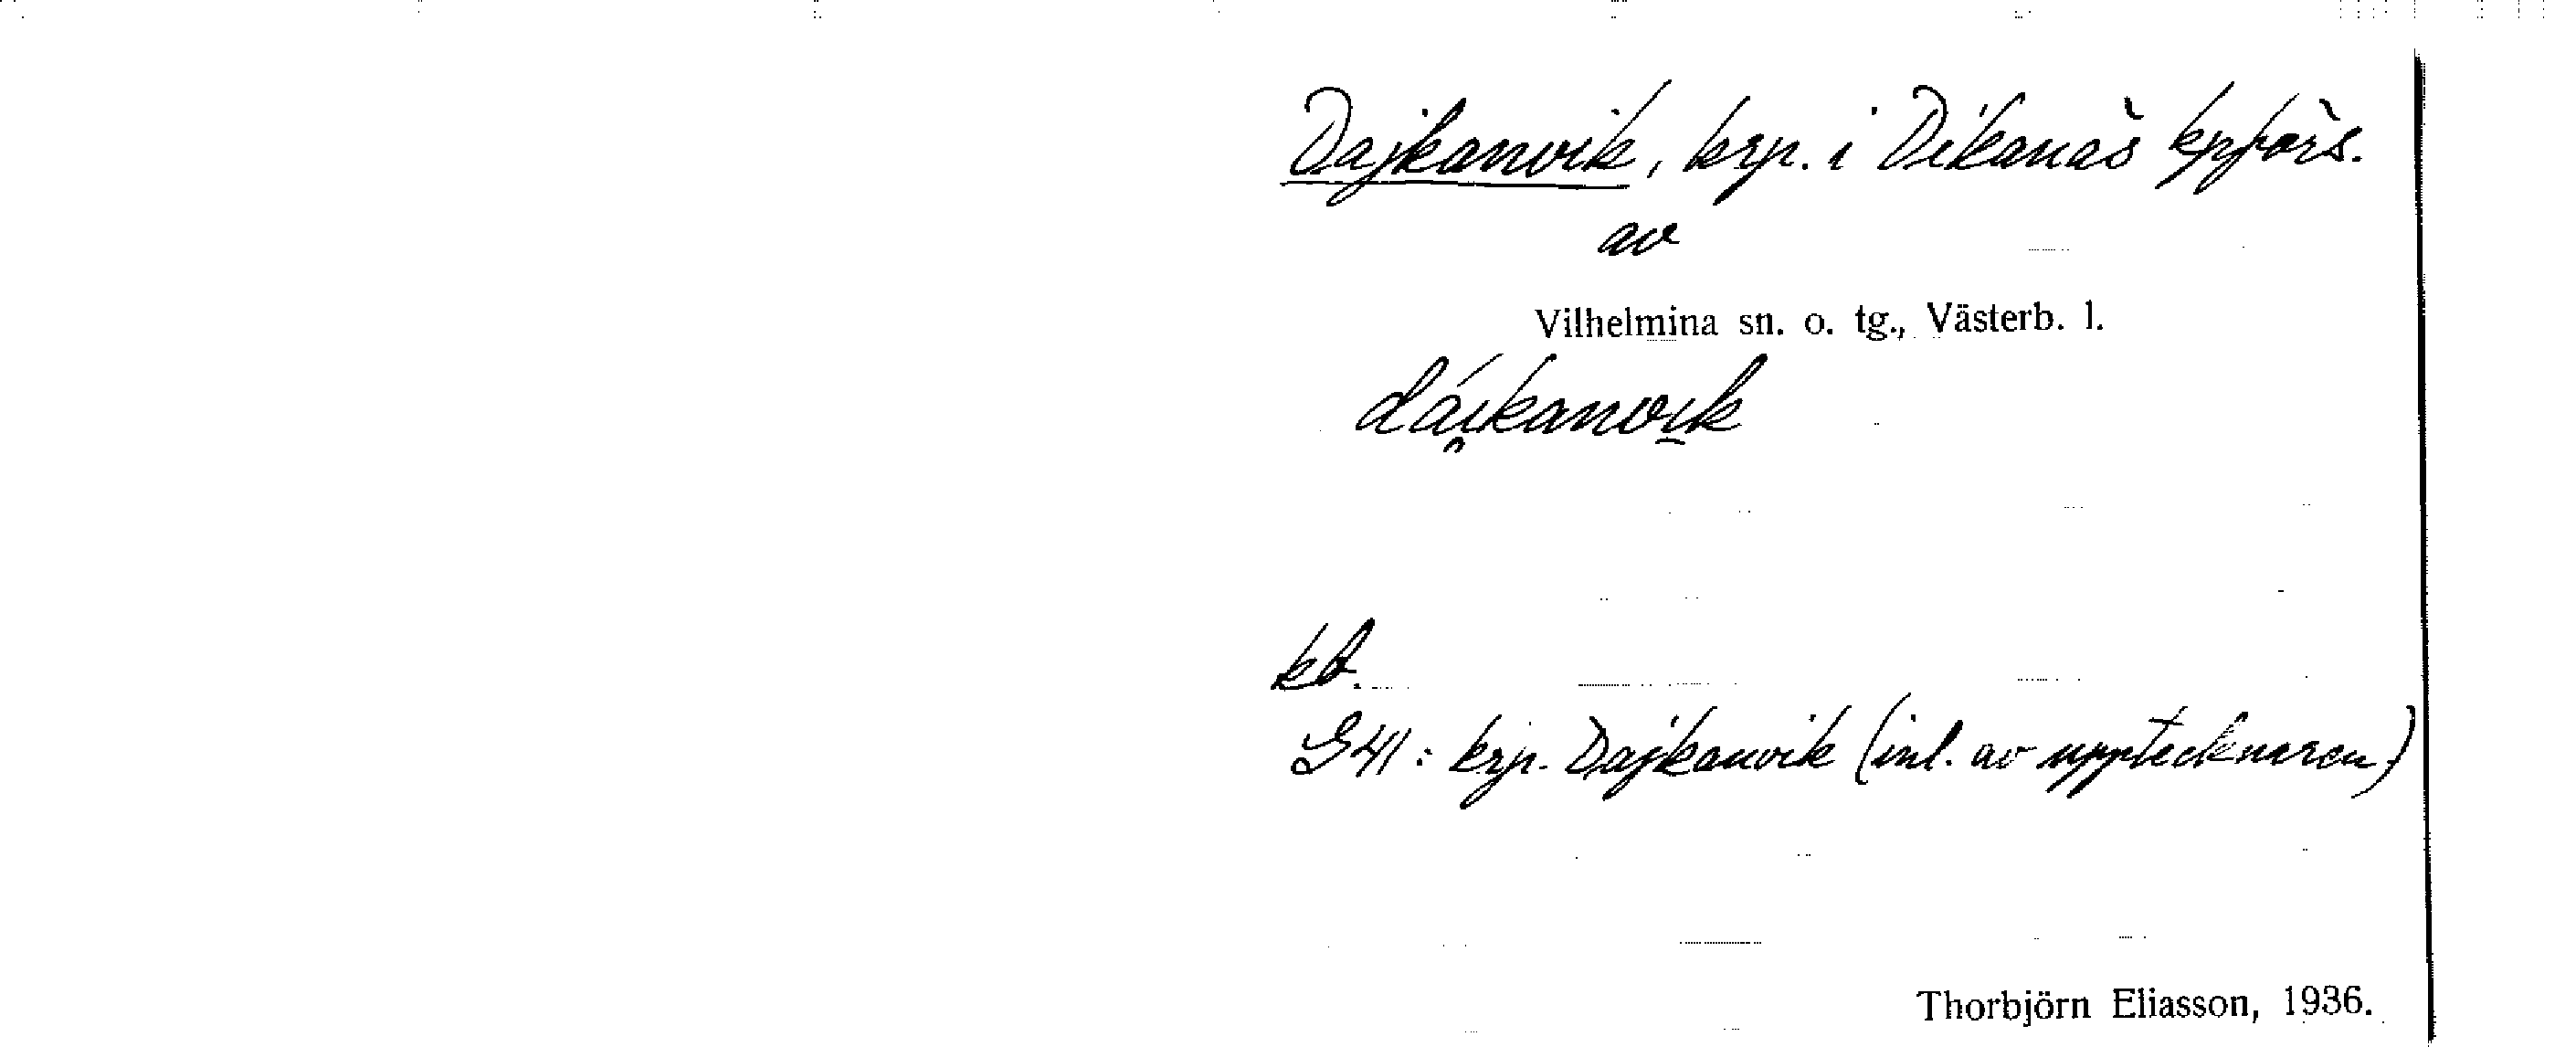 Dajkanvik, krp. i Dikanäs kpförs.
av
Vilhelmina sn. o. tg., Västerb. l.
dái̯kanvi̠k
kb.
G41: krp. Dajkanvik (inl. av upptecknaren)
Thorbjörn Eliasson, 1936.